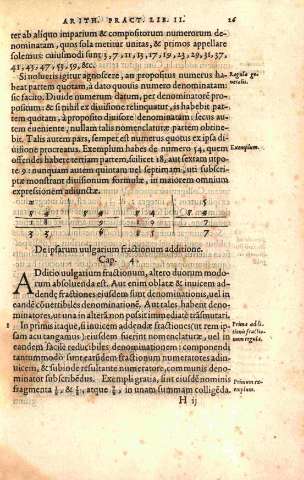 ARITH. PRACT. LIB. II. 26
ter ab aliquo imparium & compositorum numerorum de-
nominatam, quos sola metitur unitas, & primos appellare
solemus: cuiusmodi sunt 3, 7, 11, 13, 17, 19, 23, 29, 31, 37,
41, 43, 47, 53, 59, &c.
Si volueris igitur agnoscere, an propositus numerus ha-
beat partem quotam, à dato quovis numero denominatam:
sic facito. Divide numerum datum, per denominatorē pro-
positum: & si nihil ex divisione relinquatur, is habebit par-
tem quotam, à proposito divisore denominatam: secus au-
tem eveniente, nullam talis nomenclaturæ partem obtine-
bit. Talis autem pars, semper est numerus quotus ex ipsa di-
visione procreatus. Exemplum habes de numero 54, quem
offendes habere tertiam partem, scilicet 18, aut sextam utpo-
te 9: nunquam autem quintam vel septimam, uti subscri-
ptæ monstrant divisionum formulæ, in maiorem omnium
expressionem adiunctæ.
Regula ge-
neralis.
Exemplum.
De ipsarum vulgarium fractionum additione.
Cap. 4.
ADditio vulgarium fractionum, altero duorum modo-
rum absolvenda est. Aut enim oblatæ & invicem ad-
dendę fractiones eiusdem sunt denominationis, vel in
eandē coefficibiles denominationē. Aut tales habent deno-
minatores, ut una in alterā non possit immediatè trāsmutari.
1 In primis itaque, si invicem addendæ fractiones (ut rem ip-
sam acu tangamus) eiusdem fuerint nomenclaturæ, vel in
eandem facilè reducibiles denominationem: componendi
tantummodò sunt earūdem fractionum numeratores adin-
vicem, & subinde resultante numeratore, communis deno-
minator subscribēdus. Exempli gratia, sint eiusdē nominis
fragmenta atque in unam summam colligēda.
Prima addi-
tionis fractio-
num regula.
Primum ex-
emplum.
H ij